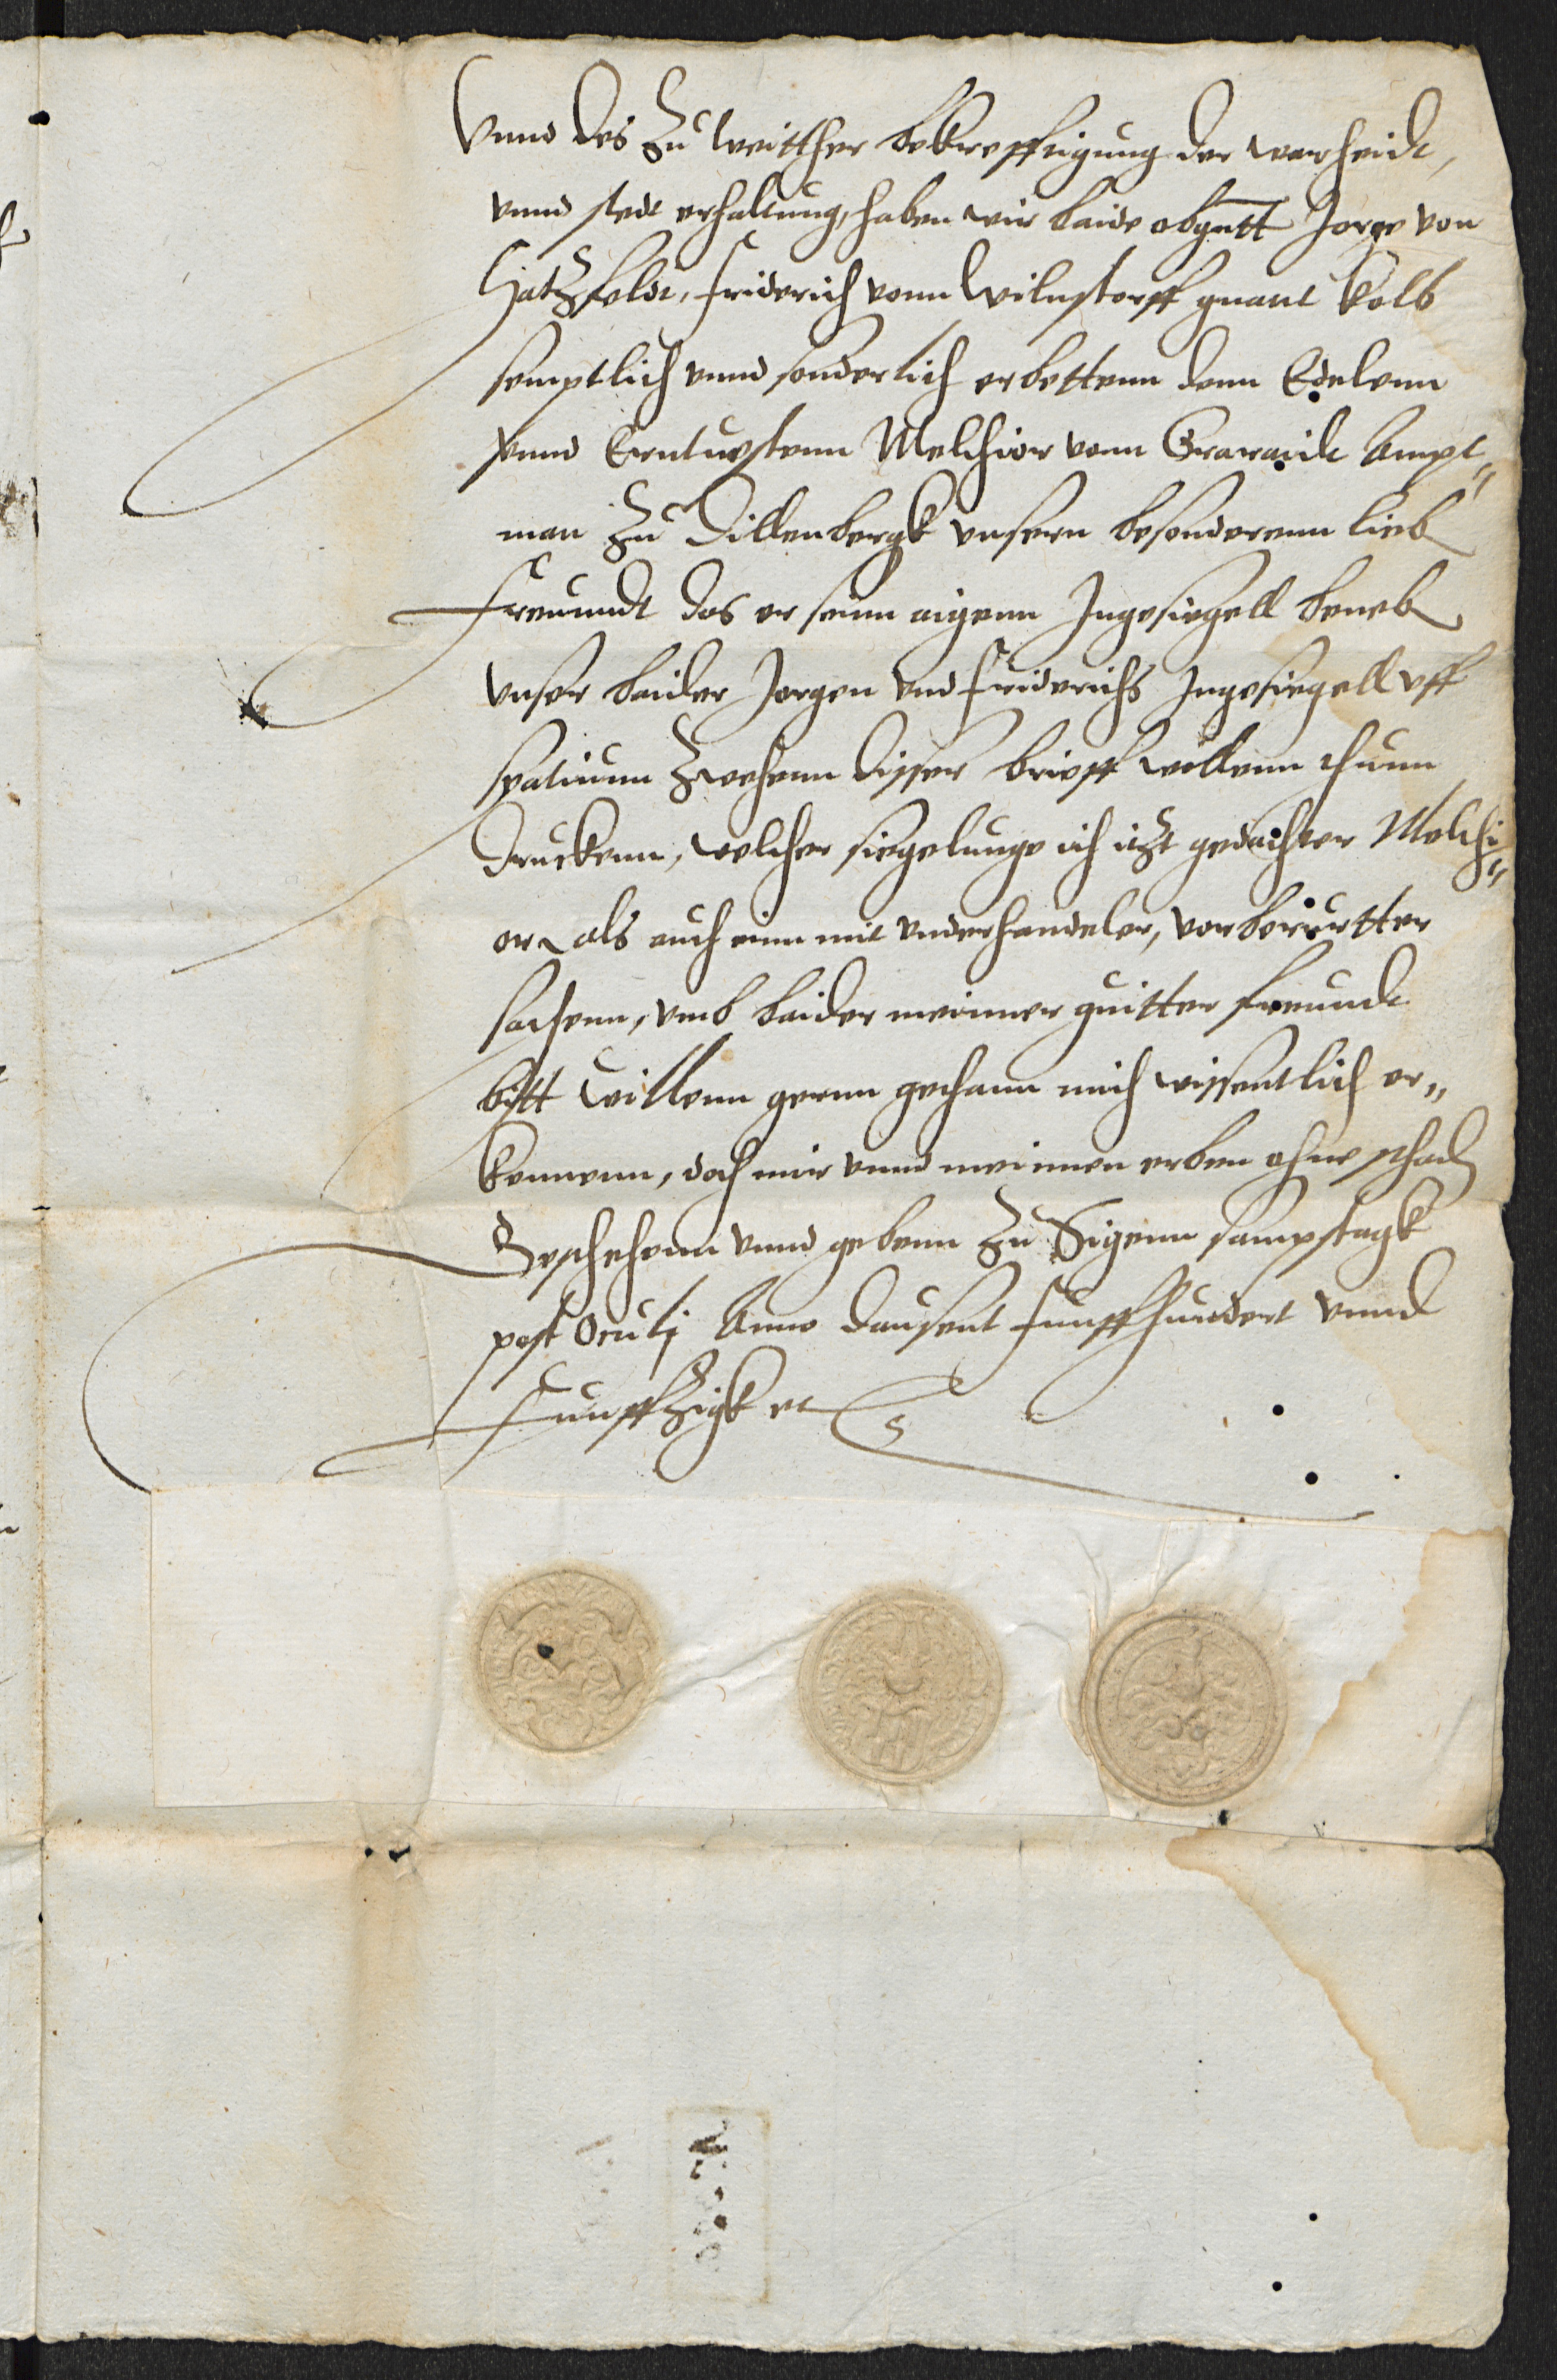 Vnnd des zu weitther bekrefftigung der warheidt,
vnnd stedt erhaltung, haben wir baide obgntt Jorge von
Hatzfeldt, Friderich vonn Wilnstorff gnant Kolb
semptlich vnnd sonderlich erbettenn denn Edelenn
vnnd Erntuestenn Melchior vonn Graraidt Ampt„
man zu Dillenbergk vnsern besonderenn lieb
Freunndt das er seinn aigenn Ingesiegell beneb
vnser baider Jorgen vnd Friderichs Ingesiegell vff
spatium zwehenn disser brieff wollenn thunn
Druckenn, welcher siegelunge ich itzt gedachter Melchi„
or als auch einn mit vnderhandeler, vorberurtter
sachenn, vmb baider meinner guitter freundt
bitt willenn gernn gethann mich wissentlich er„
kennenn, doch mir vnnd meinnen erben ohne schad
Geschehenn vnnd gebenn zu Sigenn sampstagk
post Oculj Anno Dausent Funffhundert vnnd
Funffzigk etc